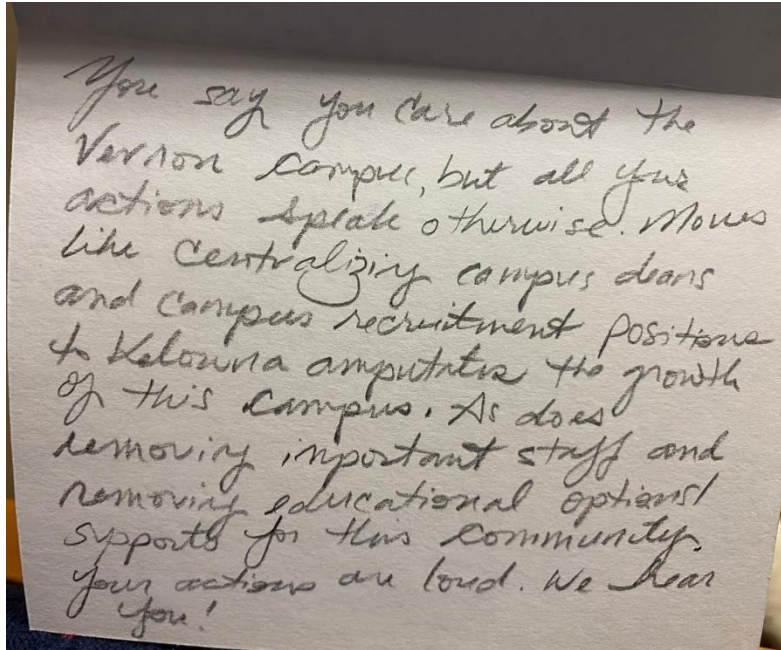 You say you care about the
Vernon campus, but all your
actions speak otherwise. Moves
like centralizing campus deans
and campus recruitment positions
to Kelowna amputates the growth
of this campus. As does
removing important staff and
removing educational options/
supports for this community.
Your actions are loud. We hear
you!